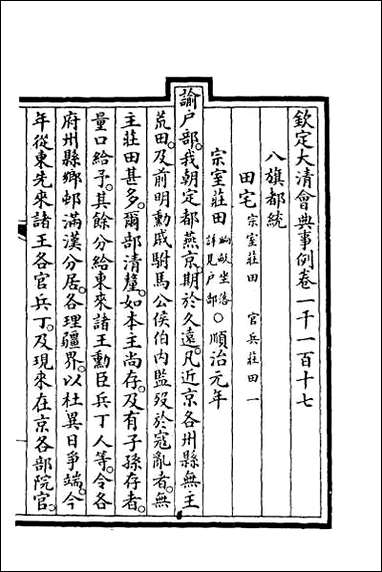 欽定大清會典事例卷一千一百十七
八旗都統
田宅 宗室莊田 官兵莊田一
宗室莊田 畝畝坐落詳見戶部○順治元年
諭戶部。我朝定都燕京。期於久遠。凡近京各州縣無主
荒田。及前明勳戚駙馬公侯伯內監歿於寇亂者。無
主莊田甚多。爾部清釐。如本主尚存。及有子孫存者。
量口給予。其餘分給東來諸王勳臣兵丁人等。令各
府州縣鄉邨滿漢分居。各理疆界。以杜異日爭端。今
年從東先來諸王各官兵丁。及現來在京各部院官。